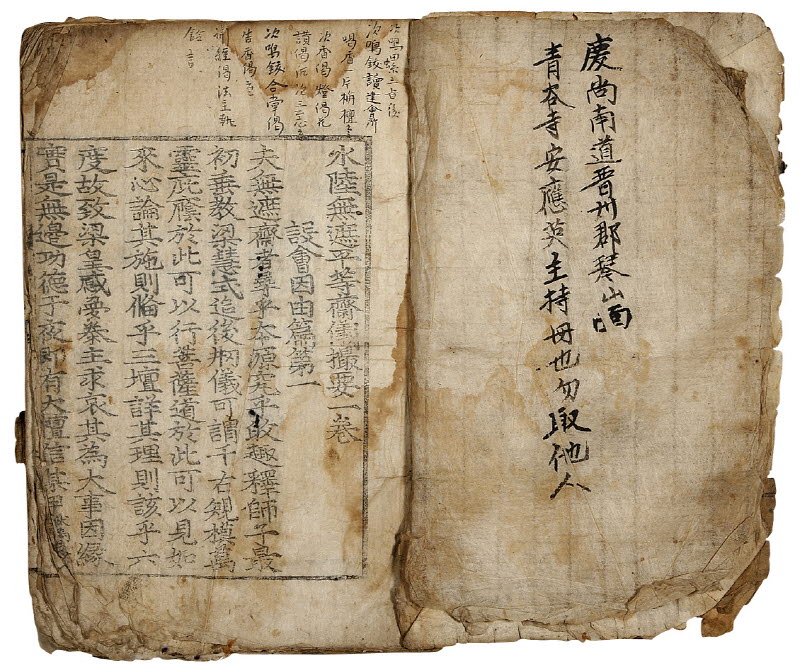 慶尚南道晋州郡琴山面
青谷寺安應英主持冊也勿取他人
次鳴鈸讀建會疏
喝香一片栴檀
次香偈燈偈花
次鳴鈸合掌偈
告香偈
開經偈法主執
鈴言
水陸無遮平等齋儀撮要一卷
設會因由篇第一
夫無遮齋者尋乎本源究乎攷趣釋師子最
初垂教梁慧式追後 儀可謂千古規模萬
靈庇廕於此可以行菩薩道於此可以見如
來心論其施則僃乎三壇詳其理則該乎六
度故致梁皇感受秦主求哀其為大事因緣
實是無邊功德于夜即有大檀信某